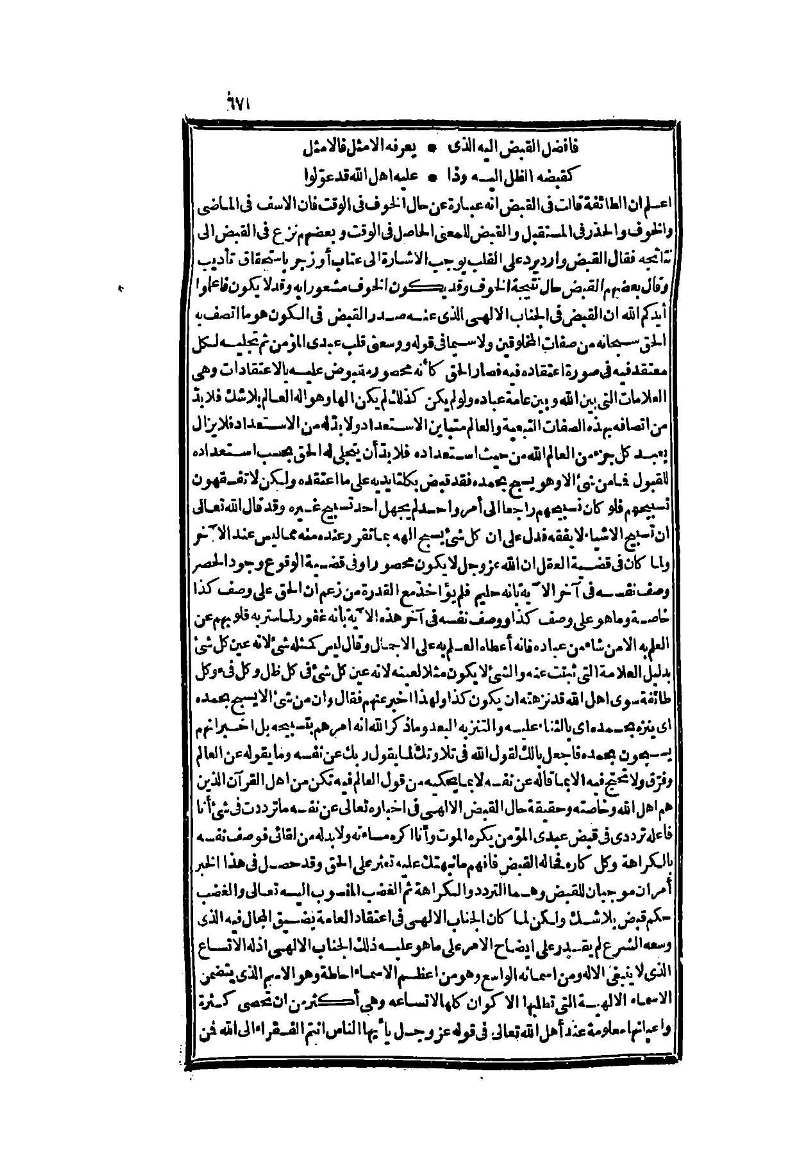 ٦٧١
فافضل القبض اليه الذى * يعرفه الامثل فالامثل
كقبضه الظل اليـــه وذا * عليه اهل الله قد عوّلوا
اعـلم ان الطائفة قالت فى القبض انه عبارة عن حال الخوف فى الوقت فان الاسف فى الماضى
والخوف والحذر فى المستقبل والقبض للمعنى الحاصل فى الوقت وبعضهم نزع فى القبض الى
نتائجه فقال القبض وارد يرد على القلب يوجب الاشارة الى عتاب أو زجر باستحقاق تأديب
وقال بعضهم القبض حال نتيجة الخوف وقد يكون الخوف مشعورا به وقد لا يكون فاعلوا
أيدكم الله ان القبض فى الجناب الالهى الذى عنه صدر القبض فى الكون هو ما اتصف به
الحق سبحانه من صفات المخلوقين ولا سيما فى قوله ووسعنى قلب عبدى المؤمن ثم تجليه لكل
معتقد فيه فى صورة اعتقاده فيه فصار الحق كأنه محصور مقبوض عليه بالاعتقادات وهى
العلامات التى بين الله وبين عامة عباده ولو لم يكن كذلك لم يكن الها وهو اله العالم بلا شك فلا بدّ
من اتصافه بهذه الصفات القبضية والعالم متباين الاستعداد ولا بدّ له من الاستعداد فلا يزال
يعبد كل جزء من العالم الله من حيث استعداده فلا بدّ أن يتجلى له الحق بحسب استعداده
للقبول فما من شئ الا وهو يسبح بحمده فقد قبض بكلتا يديه على ما اعتقده ولكن لا تفقهون
تسبيحهم فلو كان تسبيحهم راجعا الى أمر واحد لم يجهل احد تسبيح غيره وقد قال الله تعالى
ان تسبيح الاشياء لا يفقه فدل على ان كل شئ يسبح الهه بما تقرر عنده منه مما ليس عند الآخر
ولما كان فى قضية العقل ان الله عز وجل لا يكون محصورا وفى قضية الوقوع وجود الحصر
وصف نفسه فى آخر الآية بأنه حليم فلم يؤاخذ مع القدرة من زعم ان الحق على وصف كذا
خاصة وما هو على وصف كذا ووصف نفسه فى آخر هذه الآية بأنه غفور لما ستر به قلوبهم عن
العلم به الا من شاء من عباده فانه أعطاه العلم به على الاجمال وقال ليس كمثله شئ لانه عين كل شئ
بدليل العلامة التى ثبتت عنه والشئ لا يكون مثلا لعينه لانه عين كل شئ فى كل ظل وكل فىء وكل
طائفة سوى اهل الله قد نزهته ان يكون كذا ولهذا اخبر عنهم فقال وان من شئ الا يسبح بحمده
اى ينزه بحمده اى بالثناء عليه والتنزيه البعد وما ذكر الله انه امرهم بتسبيحه بل اخبر انهم
يسبحون بحمده فاجعل بالك لقول الله فى تلاوتك لما يقول ربك عن نفسه وما يقوله عن العالم
وفرّق ولا تحتج فيه الا بما قاله عن نفسه لا بما يحكيه من قول العالم فيه تكن من اهل القرآن الذين
هم اهل الله وخاصته وحقيقة حال القبض الالهى فى اخباره تعالى عن نفسه ما ترددت فى شئ أنا
فاعله ترددى فى قبض عبدى المؤمن يكره الموت وأنا اكره مساءته ولا بد له من لقائى فوصف نفسه
بالكراهة وكل كاره فحاله القبض فافهم ما نبهتك عليه تعثر على الحق وقد حصل فى هذا الخبر
أمران موجبان للقبض وهما التردد والكراهة ثم الغضب المنسوب اليه تعالى والغضب
حكم قبض بلا شك ولكن لما كان الجناب الالهى فى اعتقاد العامة يضيق المجال فيه الذى
وسعه الشرع لم يقدر على ايضاح الامر على ما هو عليه ذلك الجناب الالهى اذ له الاتساع
الذى لا ينبغى الا له ومن اسمائه الواسع وهو من اعظم الاسماء احاطة وهو الاسم الذى يتضمن
الاسماء الالهية التى تطلبها الاكوان كلها لاتساعه وهى أكثر من ان تحصى كثرة
واعيانها معلومة عند أهل الله تعالى فى قوله عز وجل يا أيها الناس انتم الفقراء الى الله فمن